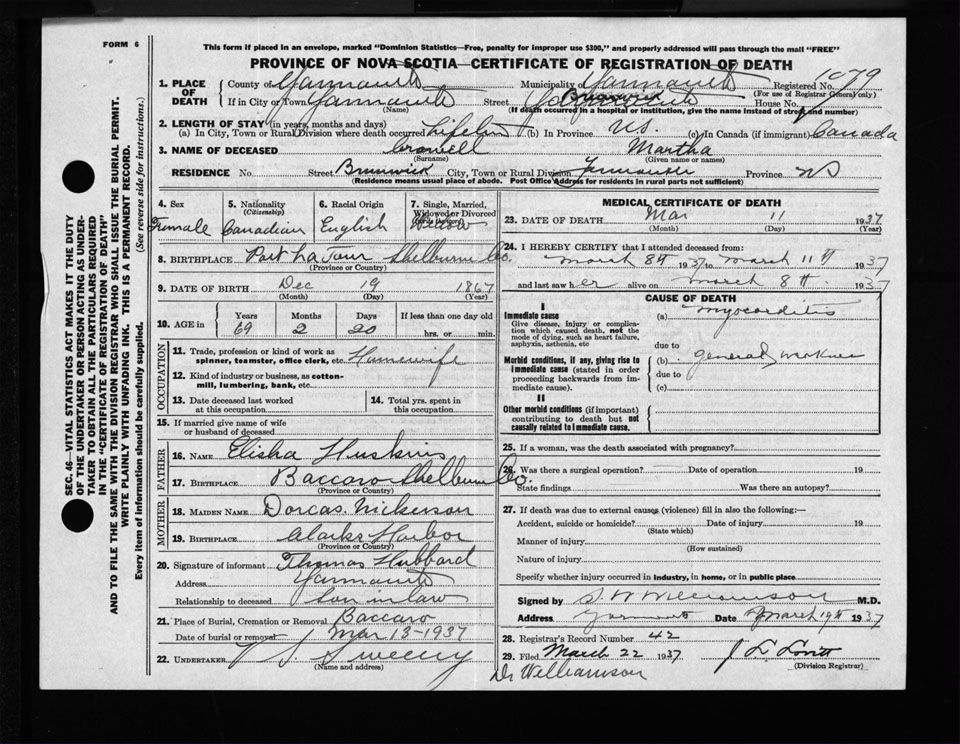 FORM 6
This form if placed in an envelope, marked "Dominion Statistics—Free, penalty for improper use $300," and properly addressed will pass through the mail "FREE"
PROVINCE OF NOVA SCOTIA—CERTIFICATE OF REGISTRATION OF DEATH
1079
1. PLACE OF DEATH
County of Yarmouth Municipality of Yarmouth Registered No.
(For use of Registrar General only)
If in City or Town Yarmouth Street Brunswick House No.
(Name) (If death occurred in a hospital or institution, give the name instead of street and number)
2. LENGTH OF STAY (in years, months and days)
(a) In City, Town or Rural Division where death occurred (b) In Province N.S. (c) In Canada (if immigrant) Canada
3. NAME OF DECEASED Crowell Martha
(Surname) (Given name or names)
RESIDENCE No. Street Brunswick City, Town or Rural Division Yarmouth Province NS
(Residence means usual place of abode. Post Office Address for residents in rural parts not sufficient)
4. Sex Female
5. Nationality (Citizenship) Canadian
6. Racial Origin English
7. Single, Married, Widowed or Divorced Widow
8. BIRTHPLACE Port La Tour Shelburne Co.
(Province or Country)
9. DATE OF BIRTH Dec 19 1867
(Month) (Day) (Year)
10. AGE in Years Months Days If less than one day old
69 2 20 hrs. or min.
OCCUPATION
11. Trade, profession or kind of work as spinner, teamster, office clerk, etc. Housewife
12. Kind of industry or business, as cotton-mill, lumbering, bank, etc.
13. Date deceased last worked at this occupation
14. Total yrs. spent in this occupation
15. If married give name of wife or husband of deceased
FATHER
16. NAME Elisha Huskins
17. BIRTHPLACE Baccaro Shelburne Co.
(Province or Country)
MOTHER
18. MAIDEN NAME Dorcas Nickerson
19. BIRTHPLACE Clarks Harbor
(Province or Country)
20. Signature of informant Thomas Hubbard
Address Yarmouth
Relationship to deceased Son in law
21. Place of Burial, Cremation or Removal Baccaro
Date of burial or removal Mar 13-1937
22. UNDERTAKER V S Sweeny
(Name and address)
MEDICAL CERTIFICATE OF DEATH
23. DATE OF DEATH Mar 11 1937
(Month) (Day) (Year)
24. I HEREBY CERTIFY that I attended deceased from:
March 8th 1937 to March 11th 1937
and last saw her alive on March 8th 1937
CAUSE OF DEATH
I
Immediate cause
Give disease, injury or complication which caused death, not the mode of dying, such as heart failure, asphyxia, asthenia, etc
(a) Myocarditis
due to
Morbid conditions, if any, giving rise to immediate cause (stated in order proceeding backwards from immediate cause).
(b) General weakness
due to
(c)
II
Other morbid conditions (if important) contributing to death but not causally related to immediate cause.
25. If a woman, was the death associated with pregnancy?
26. Was there a surgical operation? Date of operation 19
State findings Was there an autopsy?
27. If death was due to external causes (violence) fill in also the following:—
Accident, suicide or homicide? Date of injury 19
(State which)
Manner of injury
(How sustained)
Nature of injury
Specify whether injury occurred in industry, in home, or in public place
Signed by S. W Williamson M.D.
Address Yarmouth Date March 19th 1937
28. Registrar's Record Number 42
29. Filed March 22 1937 J L Lovitt
(Division Registrar)
Dr Williamson
SEC. 46—VITAL STATISTICS ACT MAKES IT THE DUTY
OF THE UNDERTAKER OR PERSON ACTING AS UNDER-
TAKER TO OBTAIN ALL THE PARTICULARS REQUIRED
IN THE "CERTIFICATE OF REGISTRATION OF DEATH"
AND TO FILE THE SAME WITH THE DIVISION REGISTRAR WHO SHALL ISSUE THE BURIAL PERMIT.
WRITE PLAINLY WITH UNFADING INK. THIS IS A PERMANENT RECORD.
Every item of information should be carefully supplied. (See reverse side for instructions.)